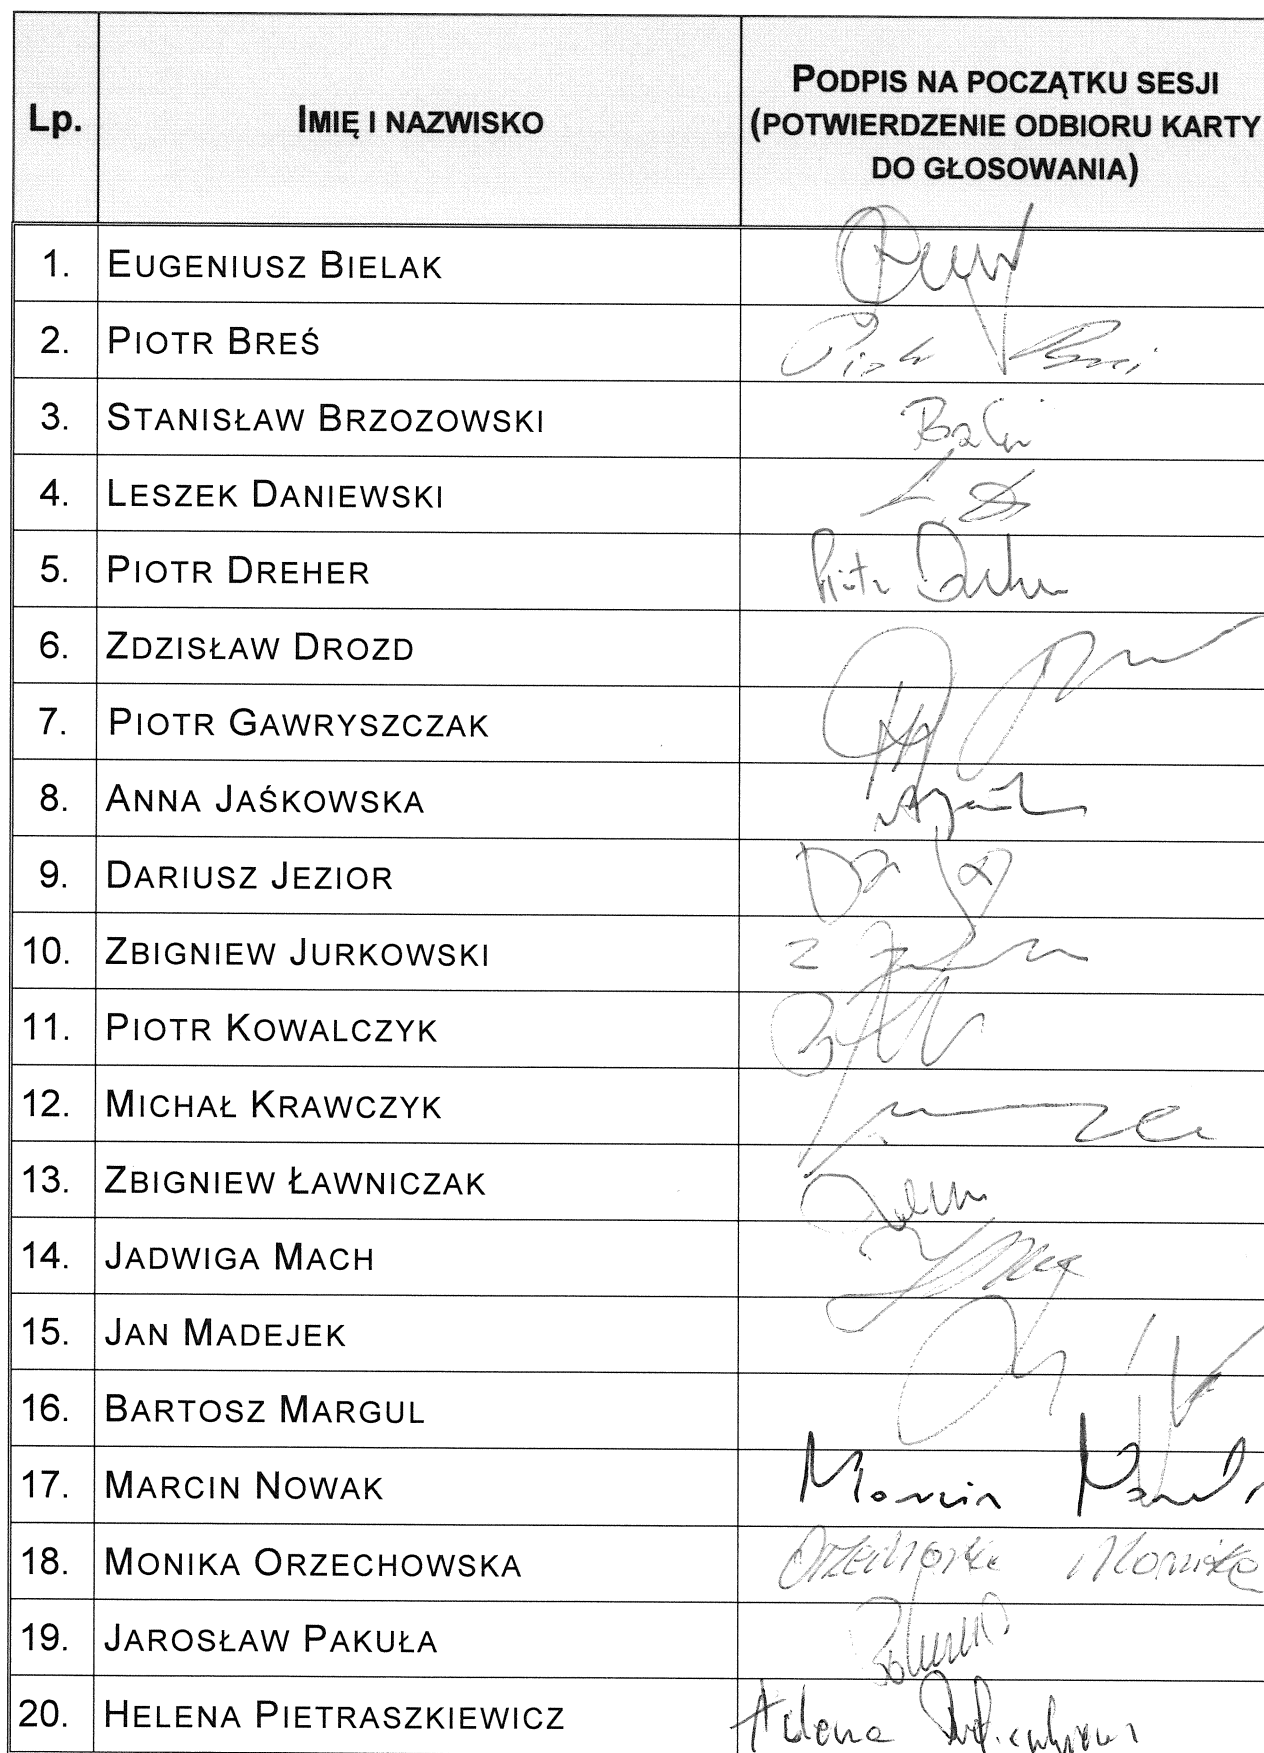 Lp.
IMIĘ I NAZWISKO
PODPIS NA POCZĄTKU SESJI
(POTWIERDZENIE ODBIORU KARTY
DO GŁOSOWANIA)
1. EUGENIUSZ BIELAK
2. PIOTR BREŚ Piotr
3. STANISŁAW BRZOZOWSKI
4. LESZEK DANIEWSKI
5. PIOTR DREHER Piotr Dreher
6. ZDZISŁAW DROZD
7. PIOTR GAWRYSZCZAK
8. ANNA JAŚKOWSKA
9. DARIUSZ JEZIOR
10. ZBIGNIEW JURKOWSKI
11. PIOTR KOWALCZYK
12. MICHAŁ KRAWCZYK
13. ZBIGNIEW ŁAWNICZAK
14. JADWIGA MACH
15. JAN MADEJEK
16. BARTOSZ MARGUL
17. MARCIN NOWAK Marcin Nowak
18. MONIKA ORZECHOWSKA Orzechowska Monika
19. JAROSŁAW PAKUŁA
20. HELENA PIETRASZKIEWICZ Helena